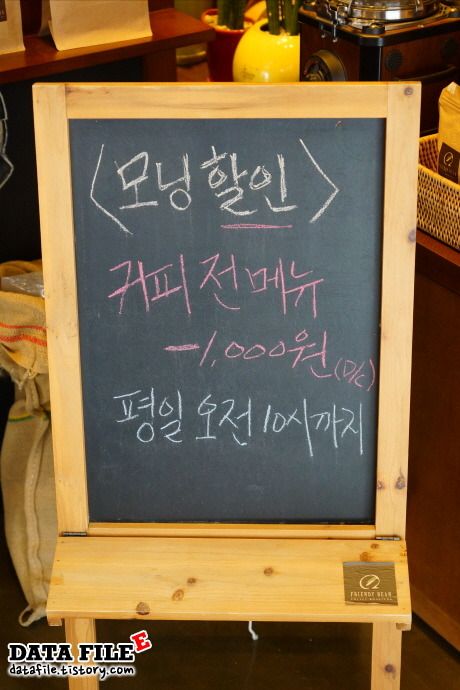 <모닝 할인>
커피 전메뉴
-1,000원(D/C)
평일 오전 10시까지
FRIENDY BEAN
DATA FILE E
datafile.tistory.com